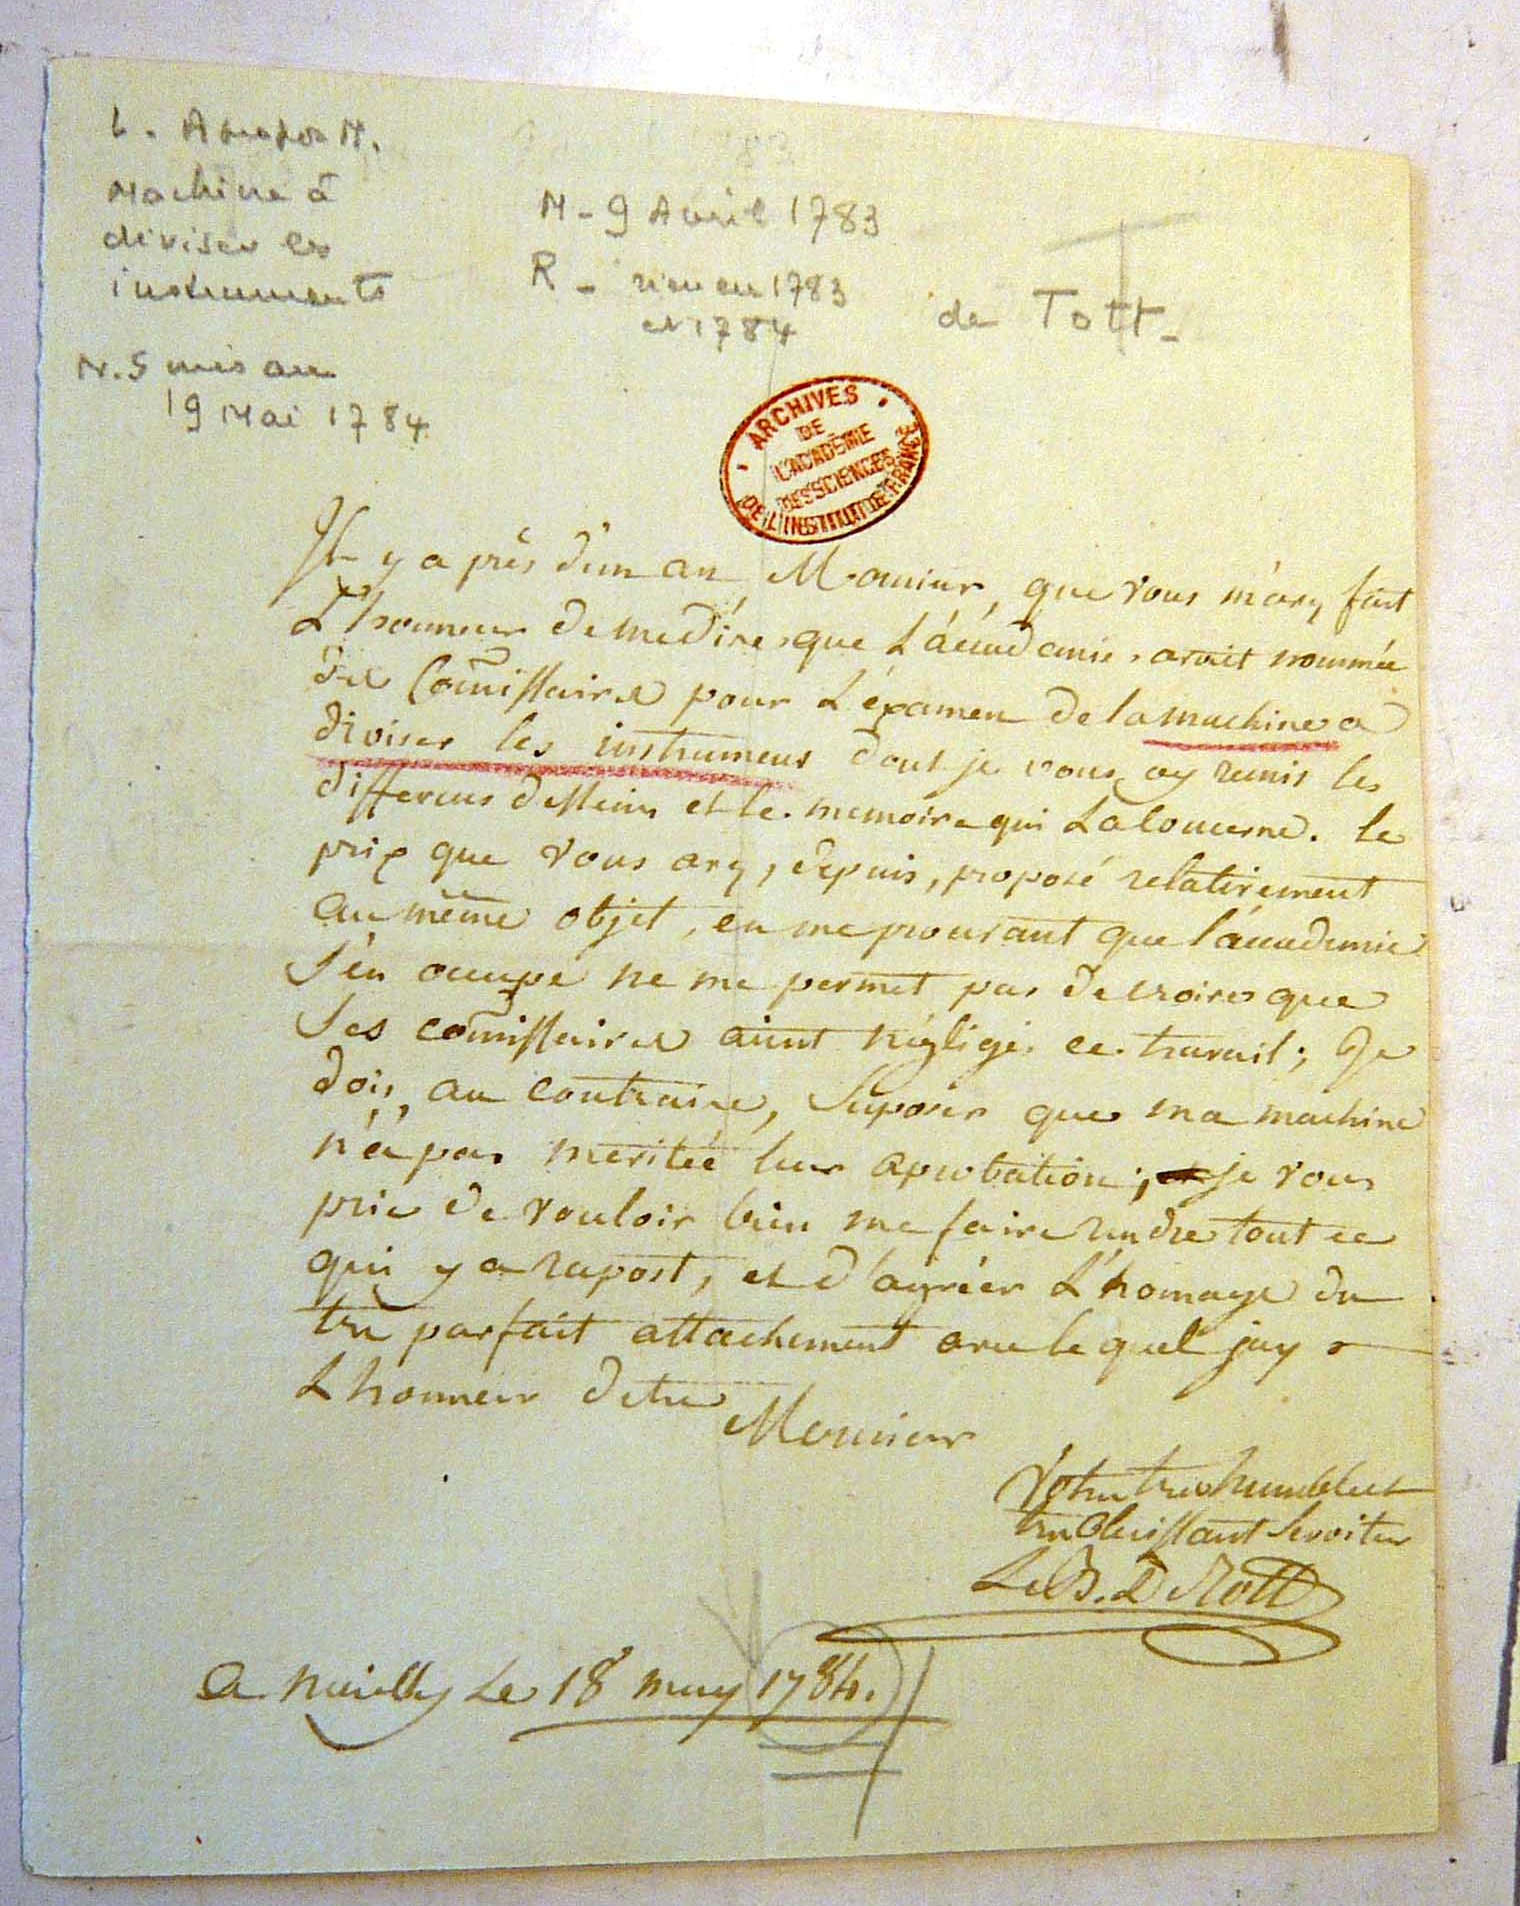 L. A propos M.
Machine à
diviser les
instruments
N.S mis au
19 Mai 1784
83
M - 9 Avril 1783
R - rien en 1783
et 1784
T
de Tott -
ARCHIVES
DE
L'ACADÉMIE
DES SCIENCES
DE L'INSTITUT DE FRANCE
Il y a près d'un an, Monsieur, que vous m'avez fait
L'honneur de me dire que L'académie, avait nommée
des Com̃issaires pour L'éxamen de la machine a
diviser les instrumens dont je vous ay remis les
differens desseins et le memoire qui La concerne. le
prix que vous avez, depuis, proposé relativement
au même objet, en me prouvant que l'académie
s'en occupe ne me permet pas de croire que
ses com̃issaires aient négligé ce travail; Je
dois, au contraire, suposer que ma machine
n'a pas meritée leur aprobation; je vous
prie de vouloir bien me faire rendre tout ce
qui y a raport, et d'agréer L'homage du
très parfait attachement avec le quel j'ay
L'honneur d'etre
Monsieur
Votre tres humble et
tres obeissant serviteur
Le B. De Tott
a neuilly Le 18 may 1784.